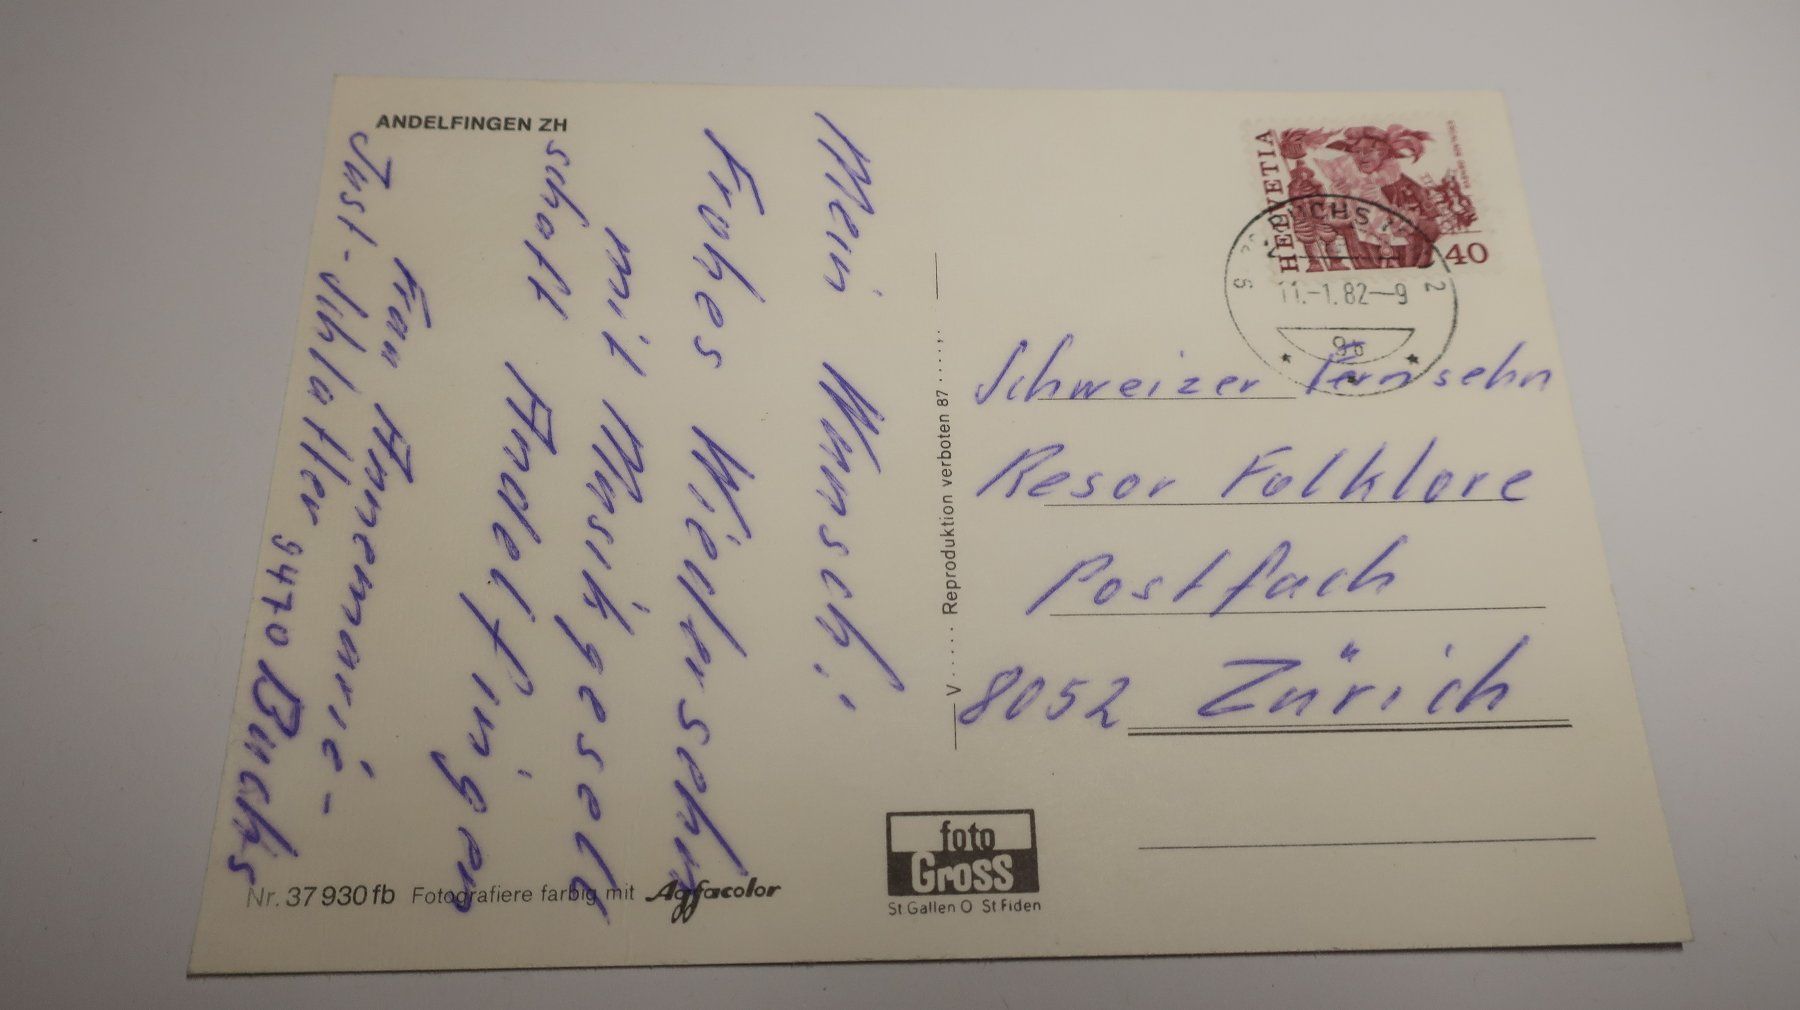 ANDELFINGEN ZH
Mein Wunsch:
Frohes Wiedersehn
mit Musikgesell
schaft
Andelfingen
Frau Annemarie-
Just-Schlatter
9470 Buchs
V..... Reproduktion verboten 87.....,.
HELVETIA
40
11.-1.82-9
Schweizer Fernsehn
Resor Folklore
Postfach
8052 Zürich
foto
Gross
St Gallen O St Fiden
Nr. 37930fb Fotografiere farbig mit Agfacolor